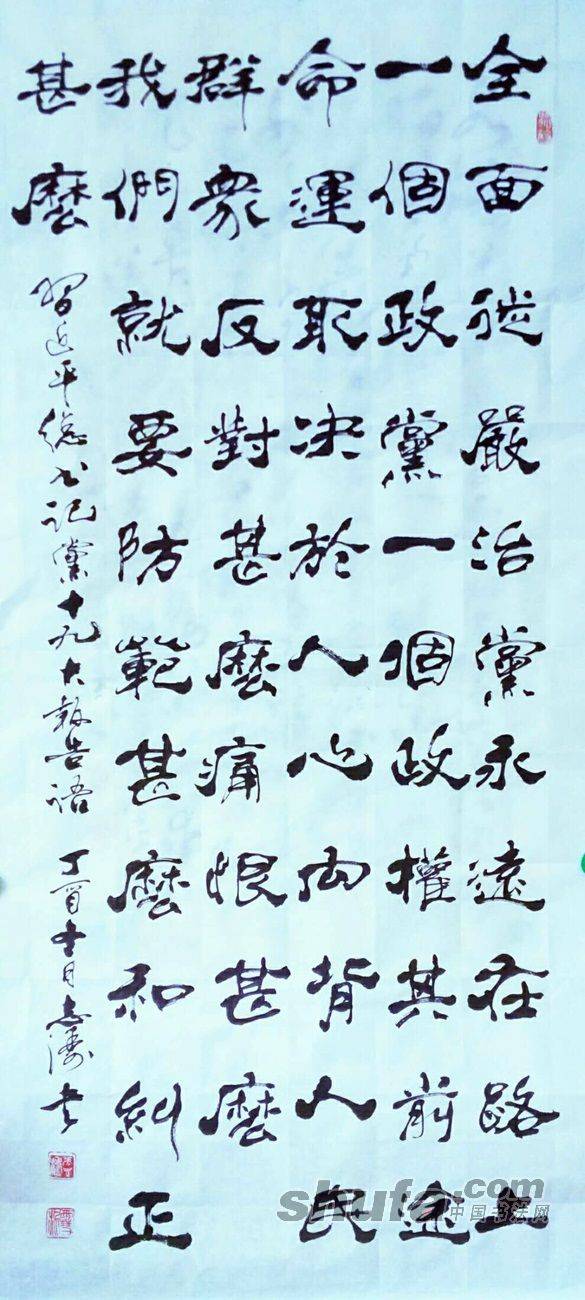 全面從嚴治黨永遠在路上
一個政黨一個政權其前途
命運取決於人心向背人民
群眾反對甚麼痛恨甚麼
我們就要防範甚麼和糾正
甚麼
習近平總書記黨十九大報告語 丁酉冬月志濤書
shufa.com
中国书法网